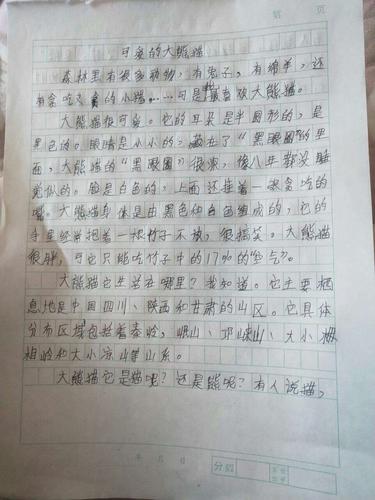 页
可爱的大熊猫
森林里有很多动物，有兔子，有绵羊，还
有贪吃的小猪……可是我最喜欢大熊猫。
大熊猫很可爱。它的耳朵是半圆形的，是
黑色的。眼睛是小小的，藏在了“黑眼圈”的里
面，大熊猫的“黑眼圈”很深，像八年都没睡
觉似的。脸是白色的，上面还挂着一张贪吃的
嘴。大熊猫身体是由黑色和白色组成的，它的
手里经常抱着一根竹子不放，很搞笑。大熊猫
很胖，可它只能吃竹子中的17%的“空气”。
大熊猫它生活在哪里？我知道。它主要栖
息地是中国四川、陕西和甘肃的山区。它具体
分布区域包括着秦岭，岷山、邛崃山、大小
相岭和大小凉山等山系。
大熊猫它是猫呢？还是熊呢？有人说猫，
年 月 日
分数